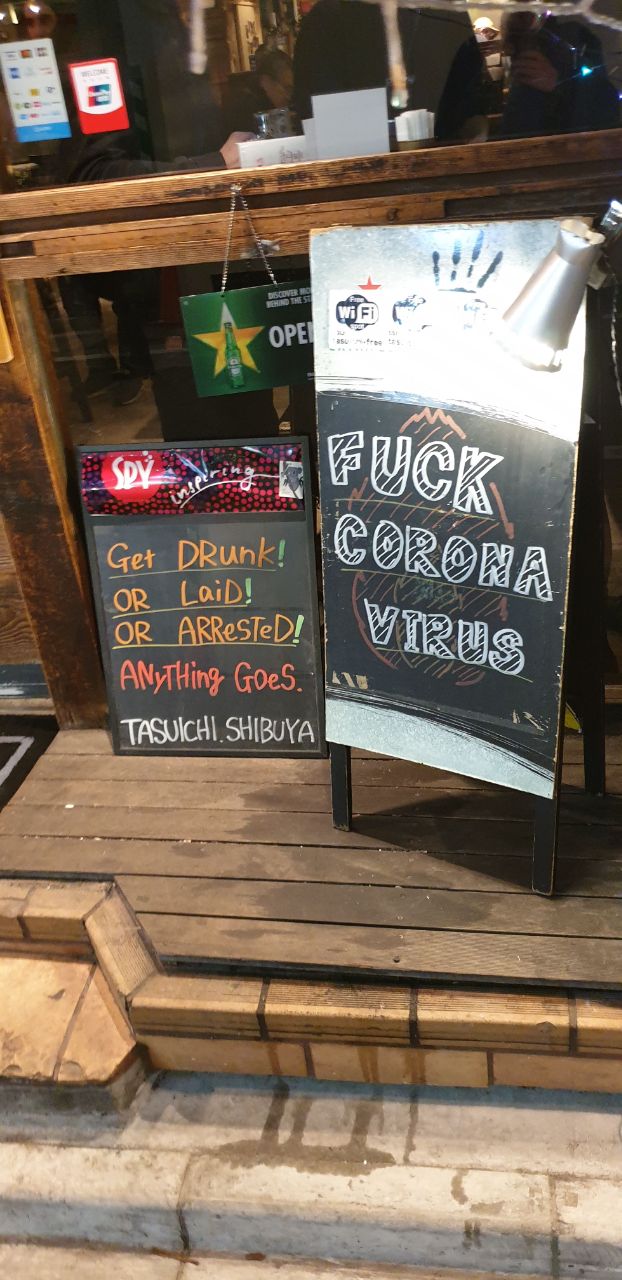 WELCOME
DISCOVER
BEHIND THE
OPEN
Free
Wi Fi
spot
SPY
inspiring
Get DRunk!
OR LaiD!
OR ARResteD!
ANyTHing GoeS.
TASUICHI.SHIBUYA
FUCK
CORONA
VIRUS